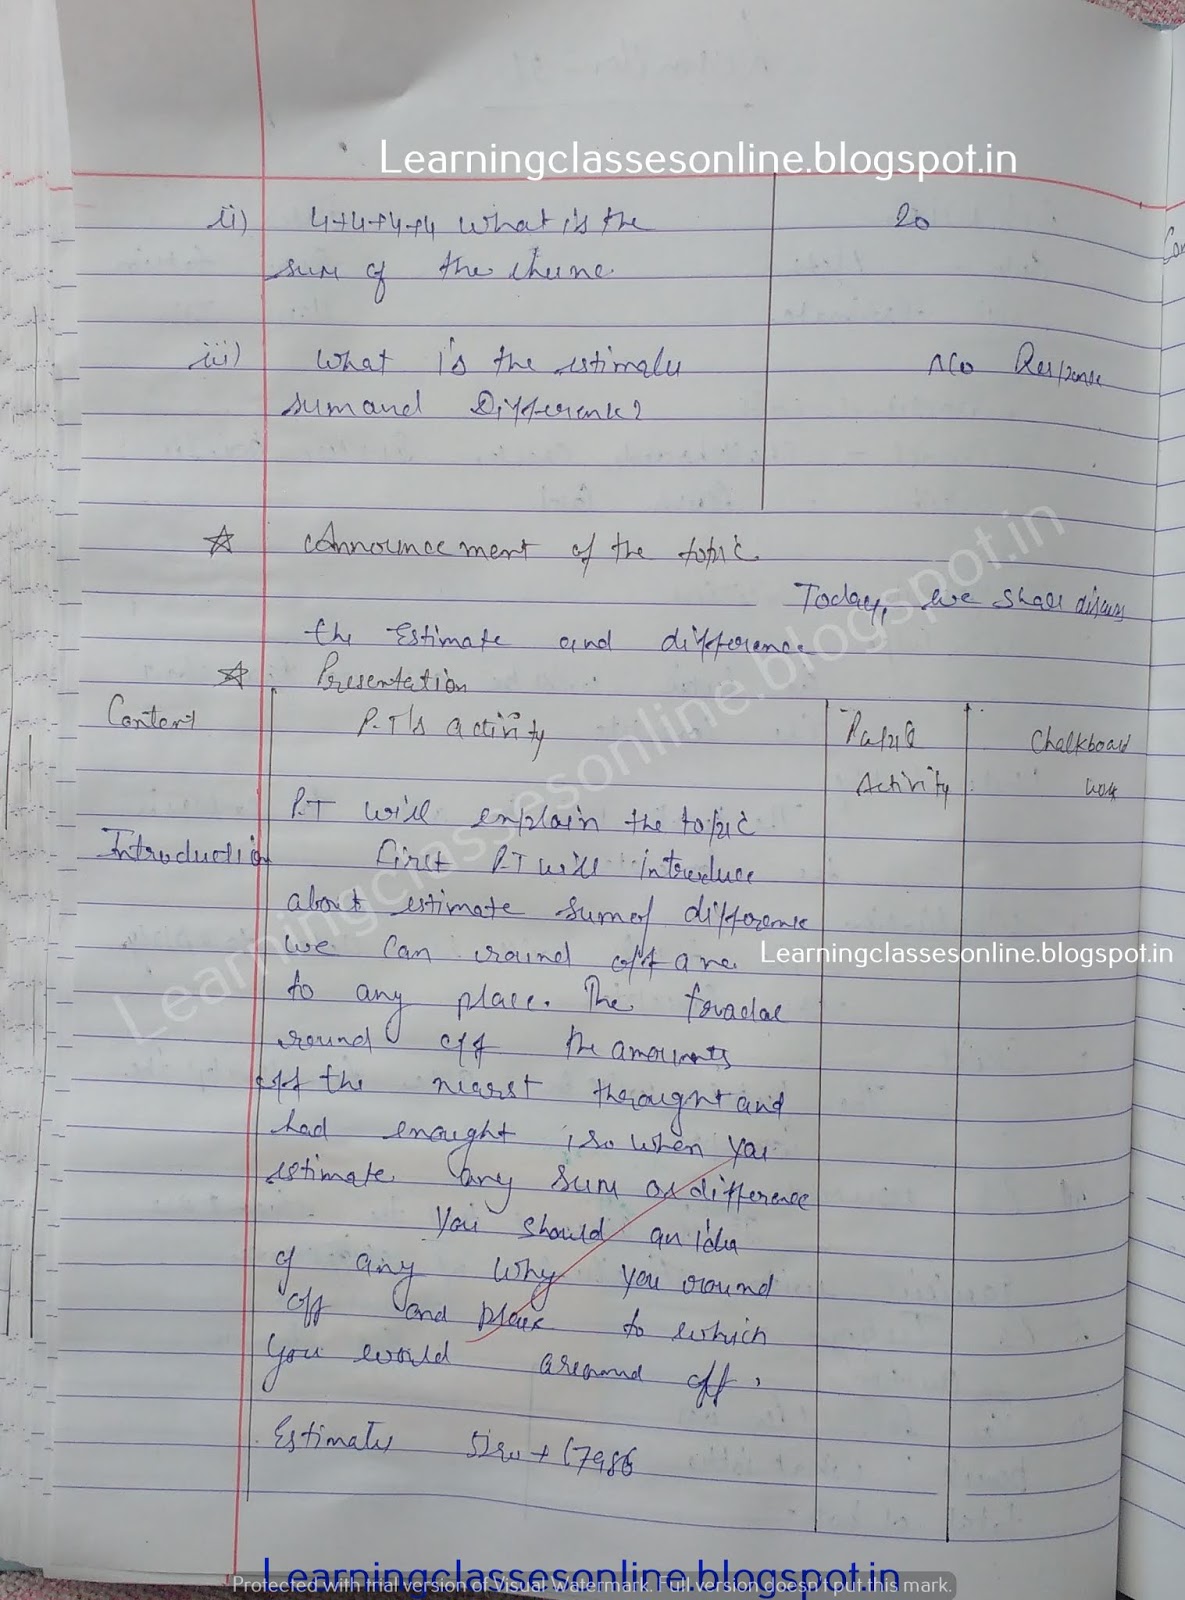 Learningclassesonline.blogspot.in
ii) 4+4+4+4 What is the 20
sum of the
iii) What is the estimate No Response
sum and Difference?
☆ Announcement of the topic.
Today, we shall discuss
the Estimate and difference
☆ Presentation
Content P.T's activity Pupil Chalkboard
Activity work
P.T will explain the topic
Introduction first P.T will introduce
about estimate sum of difference
we can round off a no.
Learningclassesonline.blogspot.in
to any place. The
round off the amounts
off the nearst and
had enought, so when you
estimate any sum or difference
You should an idea
of any why you round
off and place to which
you would around off.
Estimate +
Learningclassesonline.blogspot.in
Learningclassesonline.blogspot.in
Protected with trial version of Visual Watermark. Full version doesn't put this mark.